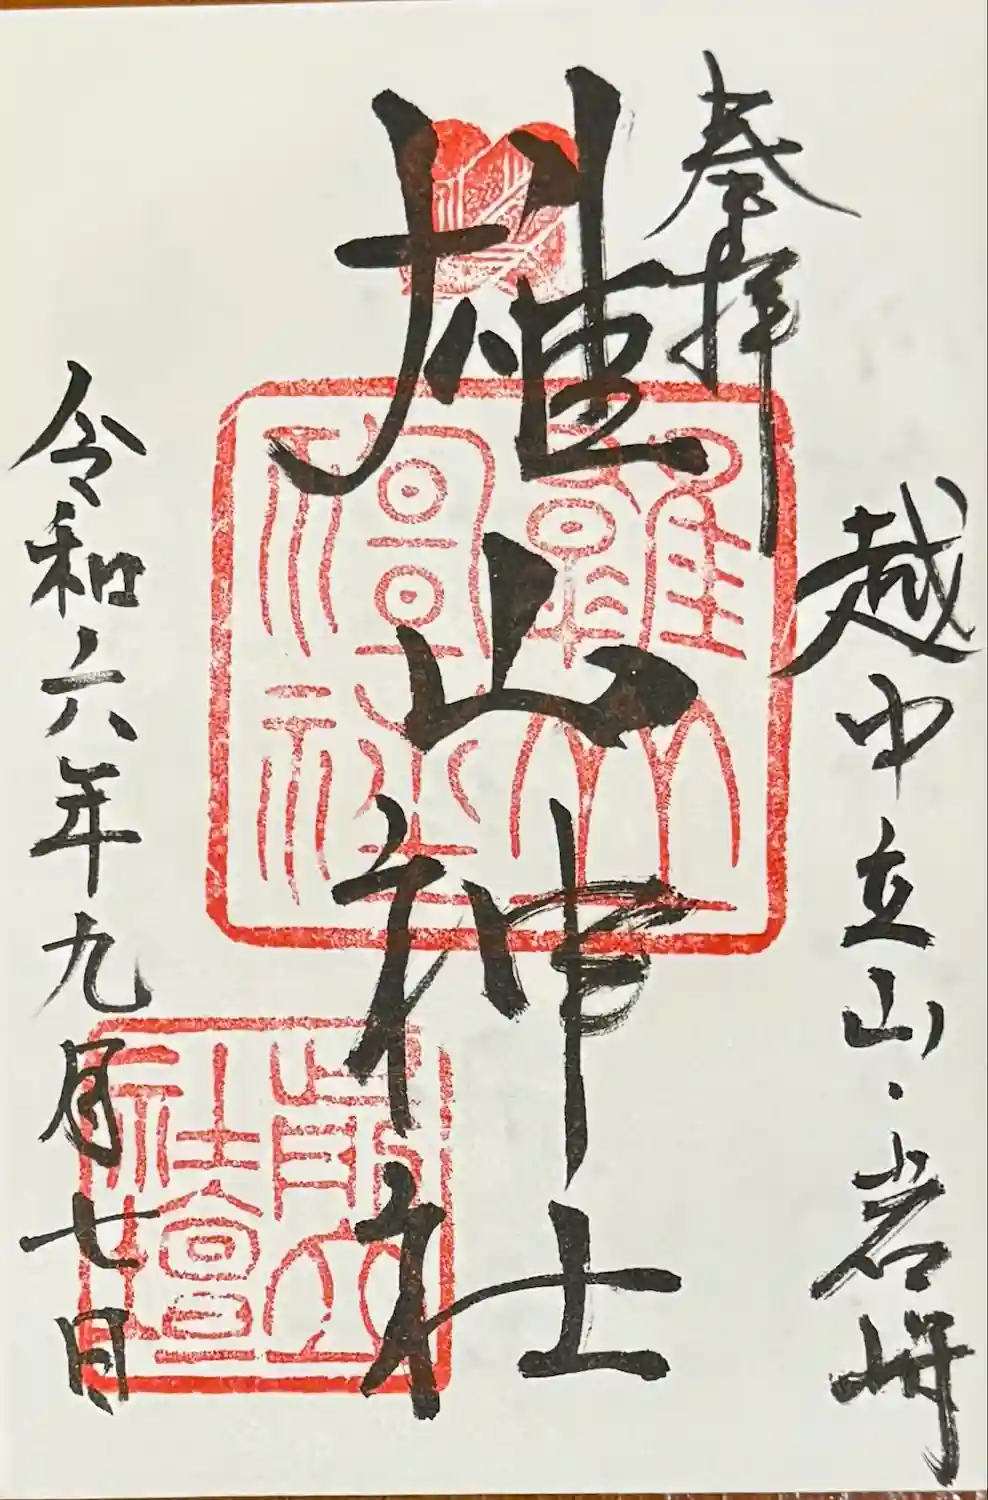 越中立山・岩峅
奉拝
雄山神社
雄山
神社
前立
社壇
令和六年九月七日